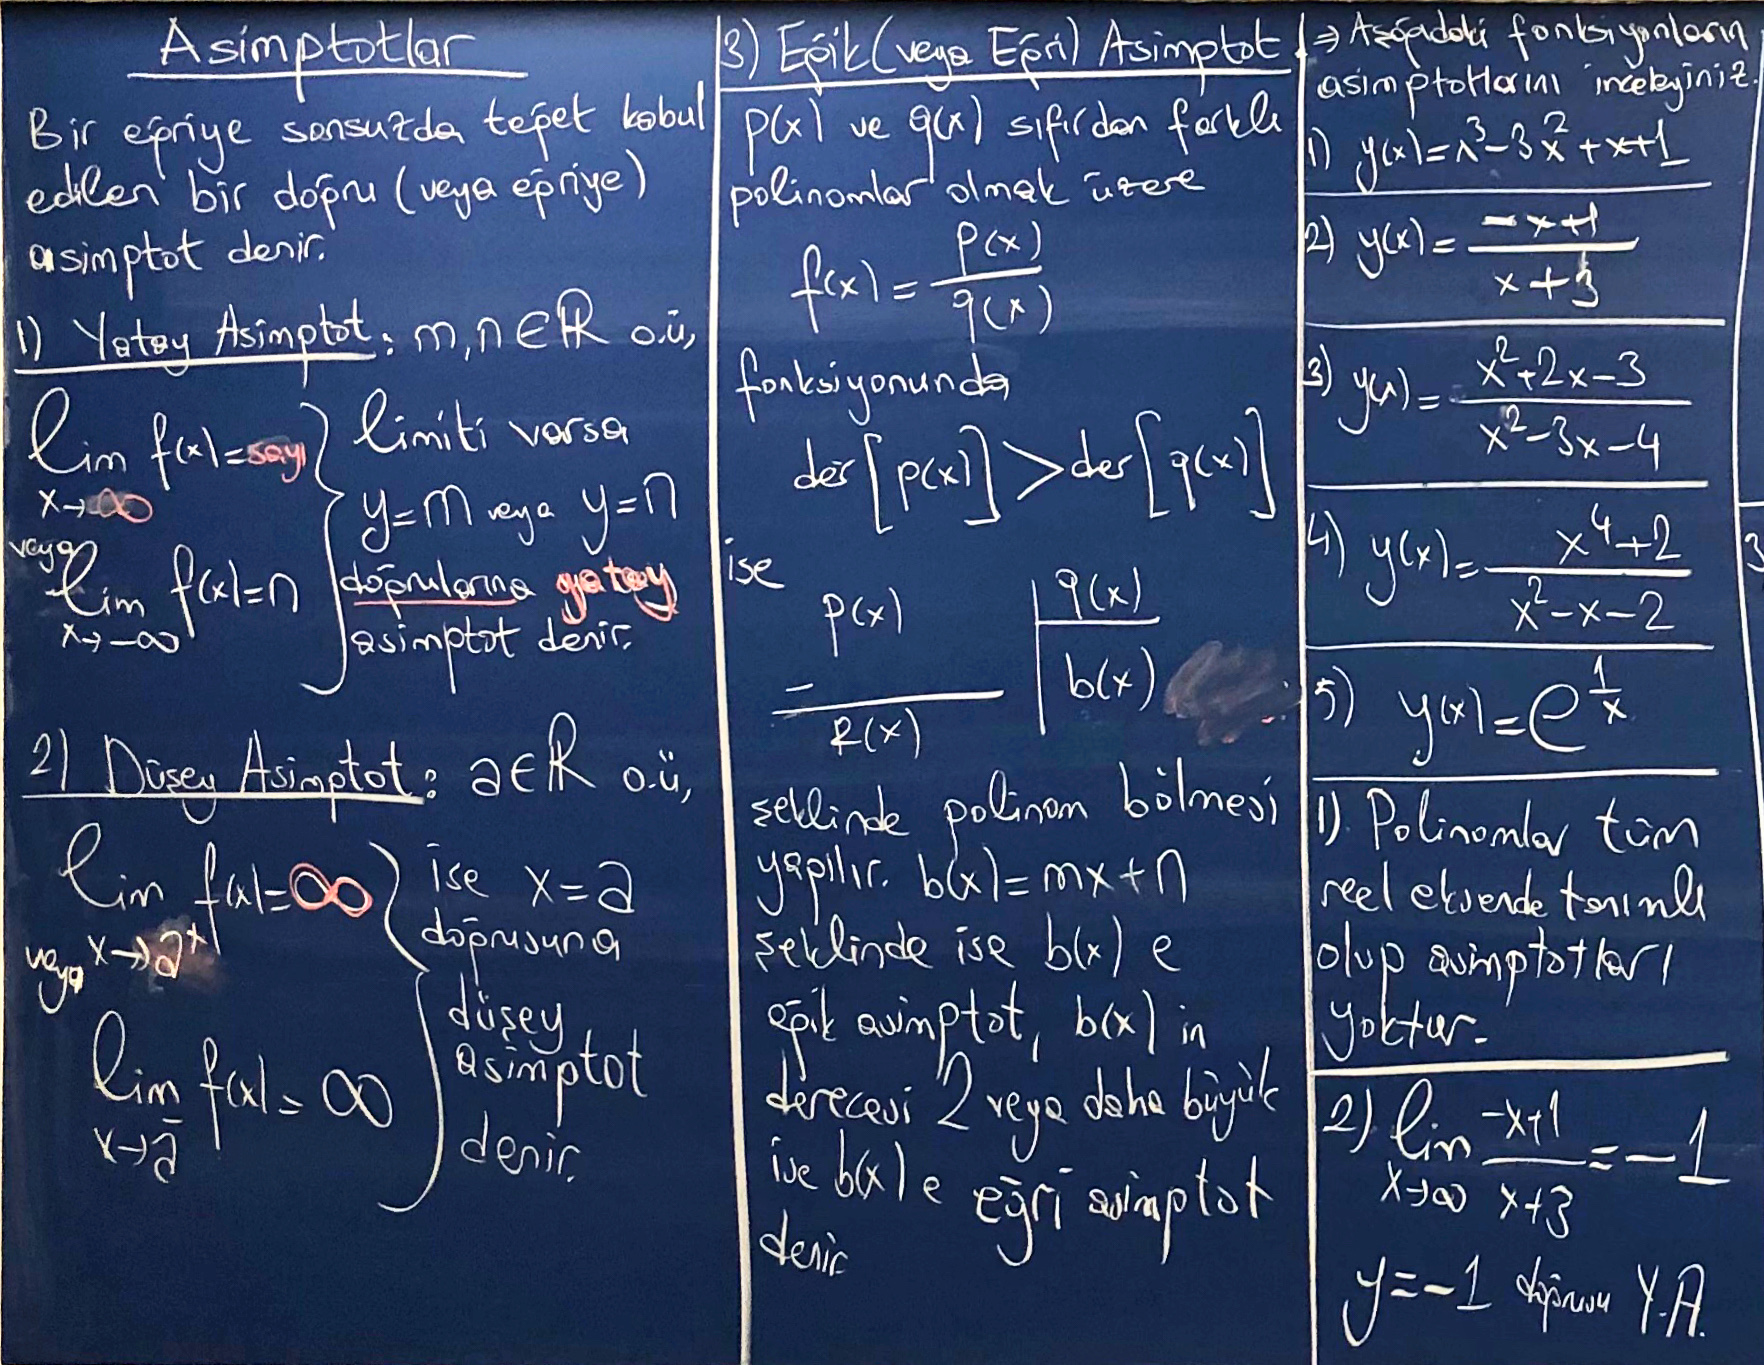 Asimptotlar
Bir eğriye sonsuzda teğet kabul
edilen bir doğru (veya eğriye)
asimptot denir.
1) Yatay Asimptot: m,n∈ℝ o.ü,
lim f(x)=sayı
x→∞
veya
lim f(x)=n
x→-∞
limiti varsa
y=m veya y=n
doğrularına yatay
asimptot denir.
2) Düşey Asimptot: a∈ℝ o.ü,
lim f(x)=∞
x→a⁺
veya
lim f(x)=∞
x→a⁻
ise x=a
doğrusuna
düşey
asimptot
denir.
3) Eğik (veya Eğri) Asimptot
p(x) ve q(x) sıfırdan farklı
polinomlar olmak üzere
f(x)= p(x)/q(x)
fonksiyonunda
der[p(x)]>der[q(x)]
ise
p(x) | q(x)
b(x)
-
R(x)
şeklinde polinom bölmesi
yapılır. b(x)=mx+n
şeklinde ise b(x) e
eğik asimptot, b(x) in
derecesi 2 veya daha büyük
ise b(x) e eğri asimptot
denir
⇒ Aşağıdaki fonksiyonların
asimptotlarını inceleyiniz.
1) y(x)=x³-3x²+x+1
2) y(x)= (-x+1)/(x+3)
3) y(x)= (x²+2x-3)/(x²-3x-4)
4) y(x)= (x⁴+2)/(x²-x-2)
5) y(x)=e^(1/x)
1) Polinomlar tüm
reel eksende tanımlı
olup asimptotları
yoktur.
2) lim (-x+1)/(x+3) = -1
x→∞
y=-1 doğrusu Y.A.
3